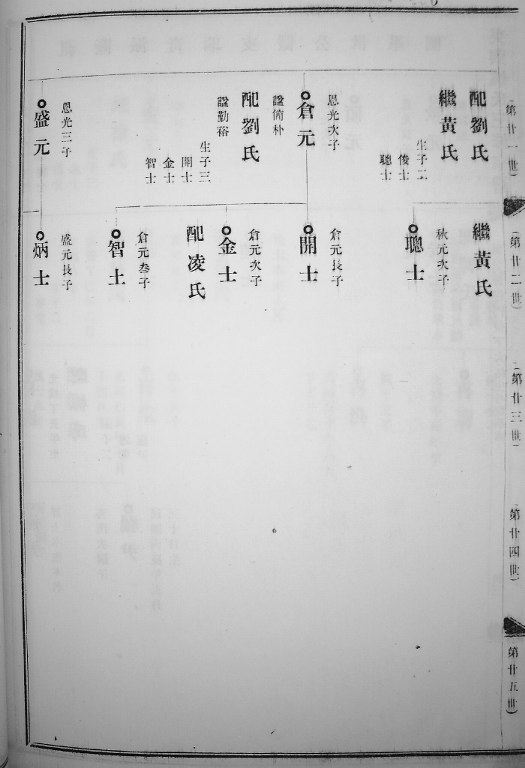 第廿一世
配劉氏
繼黃氏
生子二
俊士
聰士
恩光次子
倉元
諡簡朴
配劉氏
諡勤裕
生子三
開士
金士
智士
恩光三子
盛元
第廿二世
繼黃氏
秋元次子
聰士
倉元長子
開士
倉元次子
金士
配凌氏
倉元叁子
智士
盛元長子
炳士
第廿三世
第廿四世
第廿五世